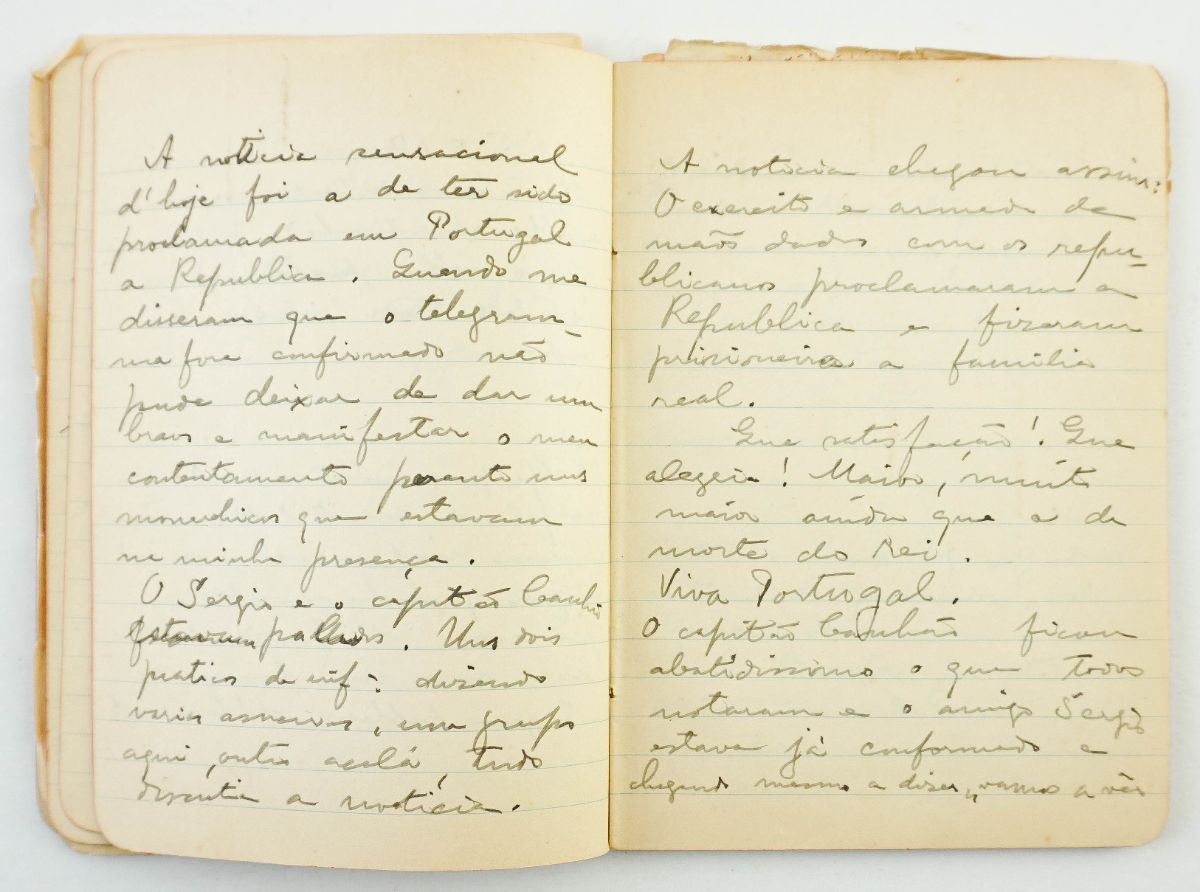 A noticia sensacional
d'hoje foi a de ter sido
proclamada em Portugal
a Republica. Quando me
disseram que o telegram-
ma fora confirmado não
pude deixar de dar um
bravo e manifestar o meu
contentamento perante uns
monarchicos que estavam
na minha presença.
O Sergio e o capitão Canhão
estavam pallidos. Uns dois
praticos de inf.ª dizendo
varias asneiras, um grupo
aqui, outro acolá, tudo
discutia a notícia.
A noticia chegou assim:
O exercito e armada de
mãos dadas com os repu-
blicanos proclamaram a
Republica e fizeram
prisioneira a familia
real.
Que satisfação! Que
alegria! Maior, muito
maior ainda que a da
morte do Rei.
Viva Portugal.
O capitão Canhão ficou
abatidissimo o que todos
notaram e o amigo Sérgio
estava já conformado e
chegando mesmo a dizer, vamos a vêr